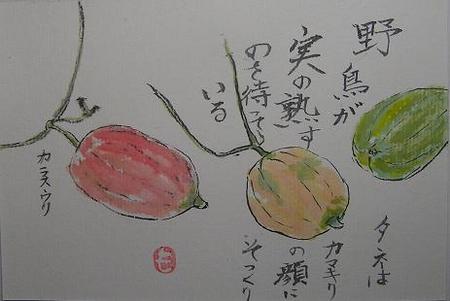 野鳥が
実の熟す
のを待って
いる
タネは
カマキリ
の顔に
そっくり
カラスウリ